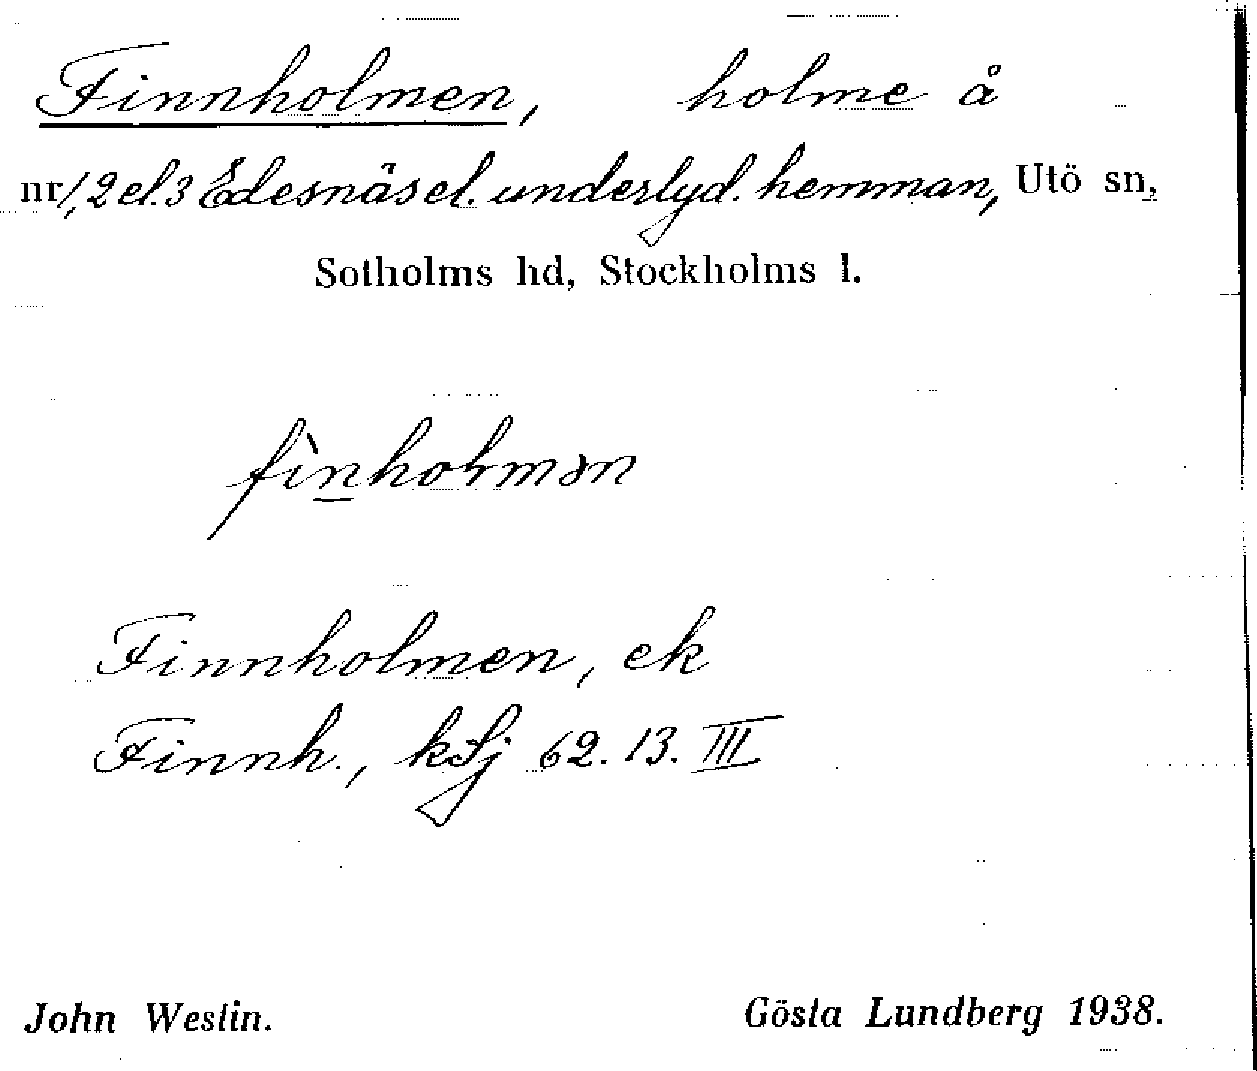 Finnholmen, holme å
nr 1, 2 el. 3 Edesnäs el. underlyd. hemman, Utö sn,
Sotholms hd, Stockholms l.
fìn̲holmən
Finnholmen, ek
Finnh., kSj 62. 13. III
John Westin. Gösta Lundberg 1938.